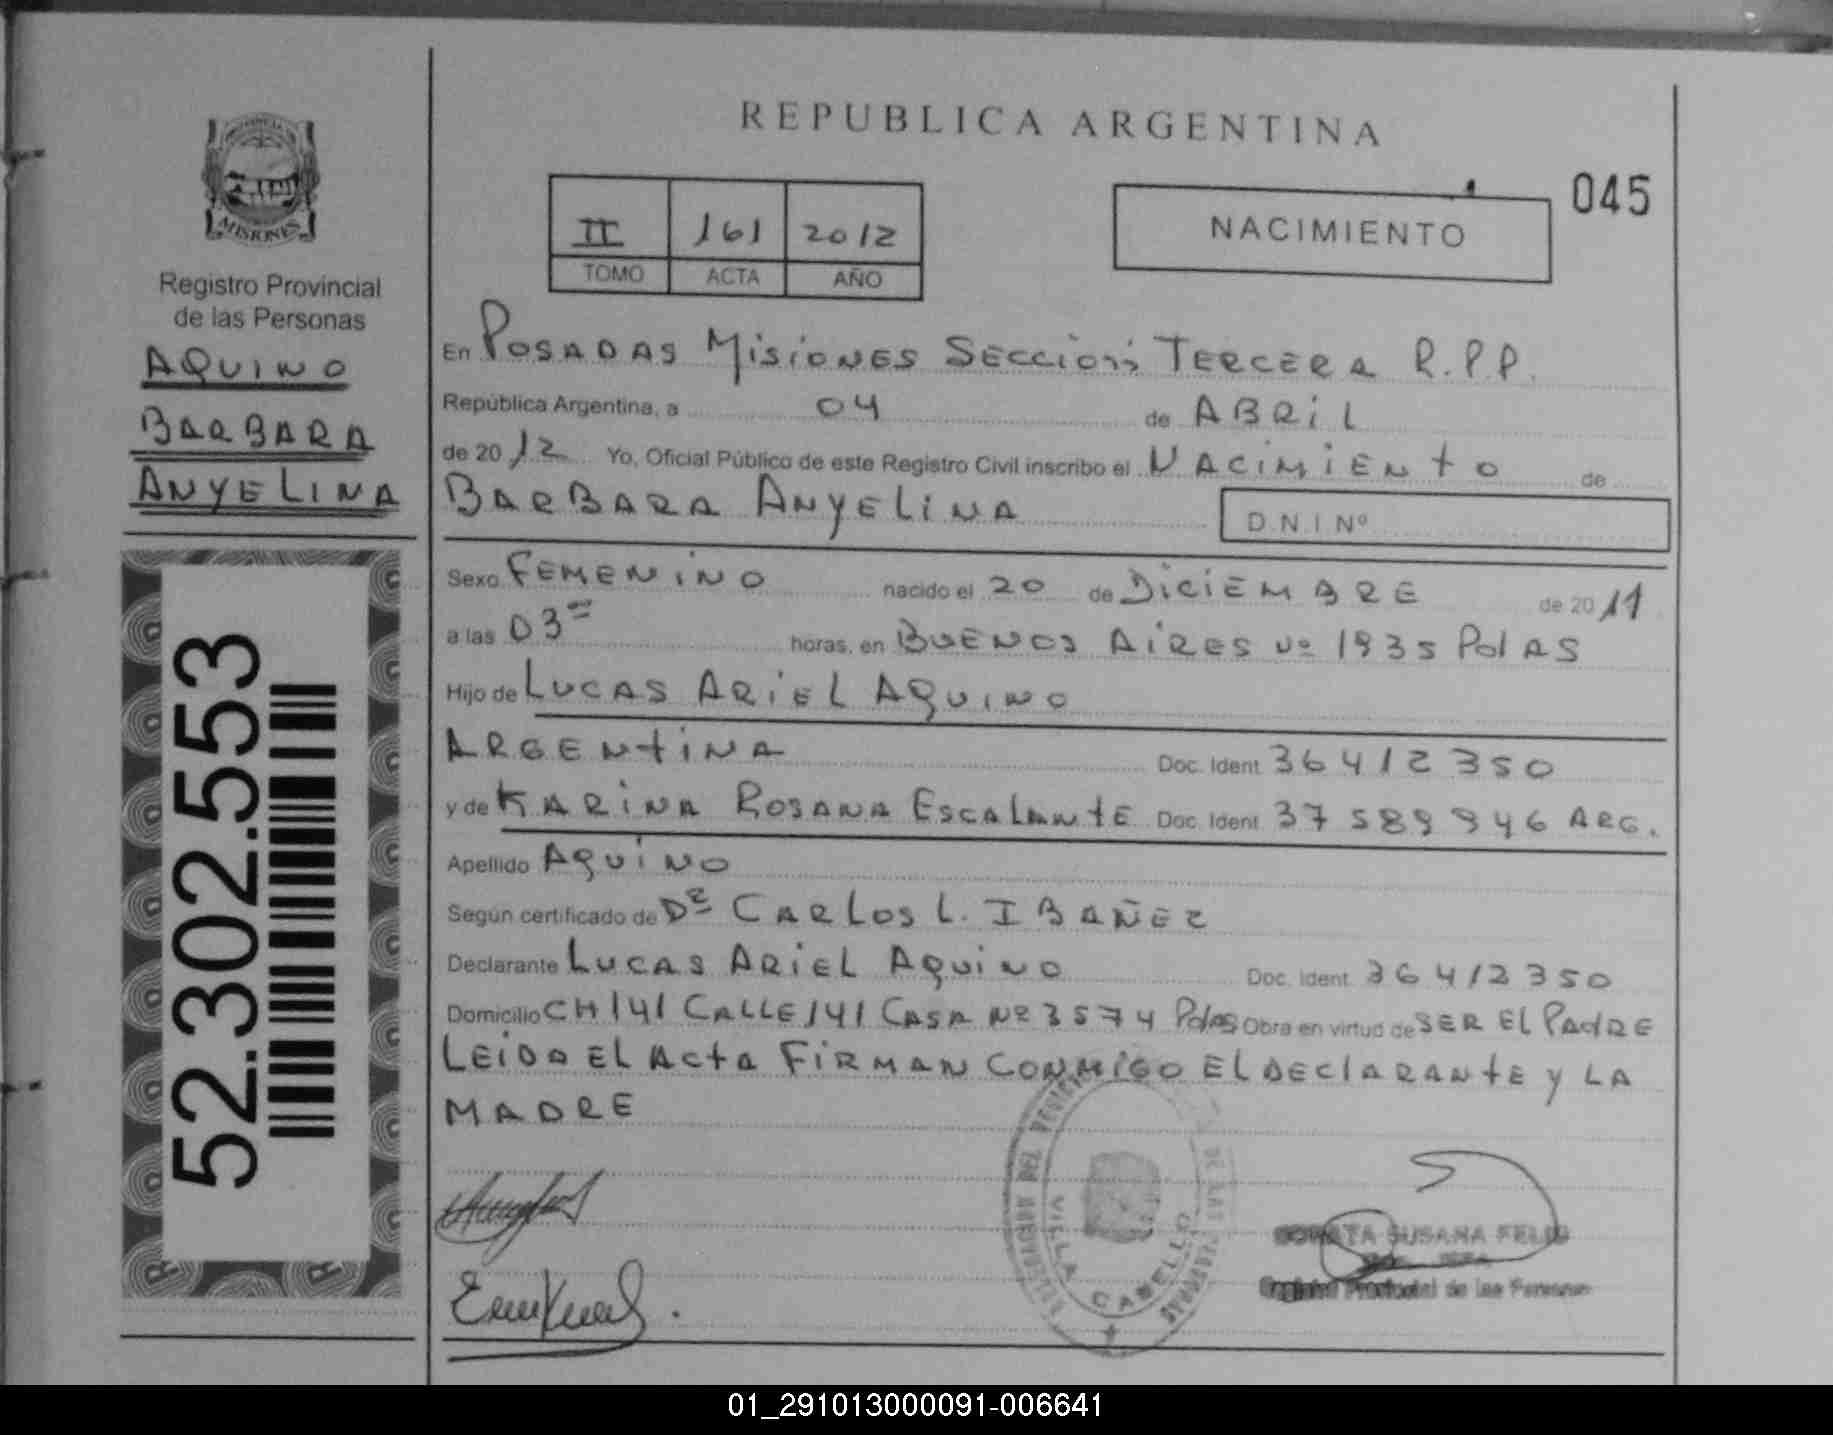 REPUBLICA ARGENTINA
045
II 161 2012
TOMO ACTA AÑO
NACIMIENTO
MISIONES
Registro Provincial
de las Personas
AQUINO
BARBARA
ANYELINA
52.302.553
En POSADAS MISIONES SECCION TERCERA R.P.P.
República Argentina, a 04 de ABRIL
de 2012 Yo, Oficial Público de este Registro Civil inscribo el NACIMIENTO de
BARBARA ANYELINA D.N.I Nº
Sexo FEMENINO nacido el 20 de DICIEMBRE de 2011
a las 03 horas, en BUENOS AIRES Nº 1935 Pdas
Hijo de LUCAS ARIEL AQUINO
ARGENTINA Doc. Ident 36412350
y de KARINA ROSANA ESCALANTE Doc. Ident 37589946 ARG.
Apellido AQUINO
Según certificado de Dr CARLOS L. IBAÑEZ
Declarante LUCAS ARIEL AQUINO Doc. Ident. 36412350
Domicilio CH 141 CALLE 141 CASA Nº 3574 Pdas Obra en virtud de SER EL PADRE
LEIDA EL ACTA FIRMAN CONMIGO EL DECLARANTE Y LA
MADRE
VILLA CABELLO
SUSANA
Provincial de las Personas
01_291013000091-006641